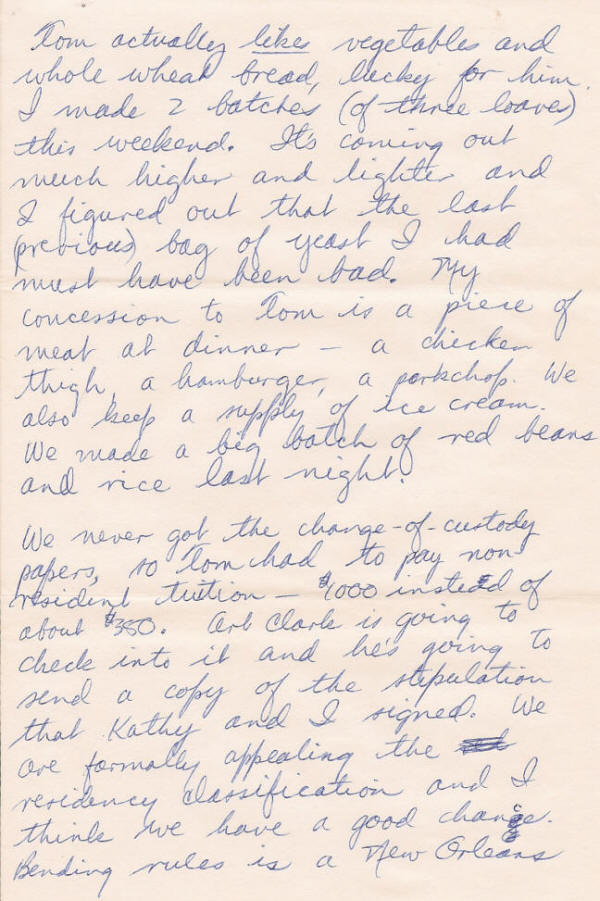 Tom actually likes vegetables and
whole wheat bread, lucky for him.
I made 2 batches (of three loaves)
this weekend. It's coming out
much higher and lighter and
I figured out that the last
(previous) bag of yeast I had
must have been bad. My
concession to Tom is a piece of
meat at dinner – a chicken
thigh, a hamburger, a porkchop. We
also keep a supply of ice cream.
We made a big batch of red beans
and rice last night.
We never got the change-of-custody
papers, so Tom had to pay non-
resident tuition – $1000 instead of
about $350. Art Clark is going to
check into it and he's going to
send a copy of the stipulation
that Kathy and I signed. We
are formally appealing the
residency classification and I
think we have a good chance.
Bending rules is a New Orleans